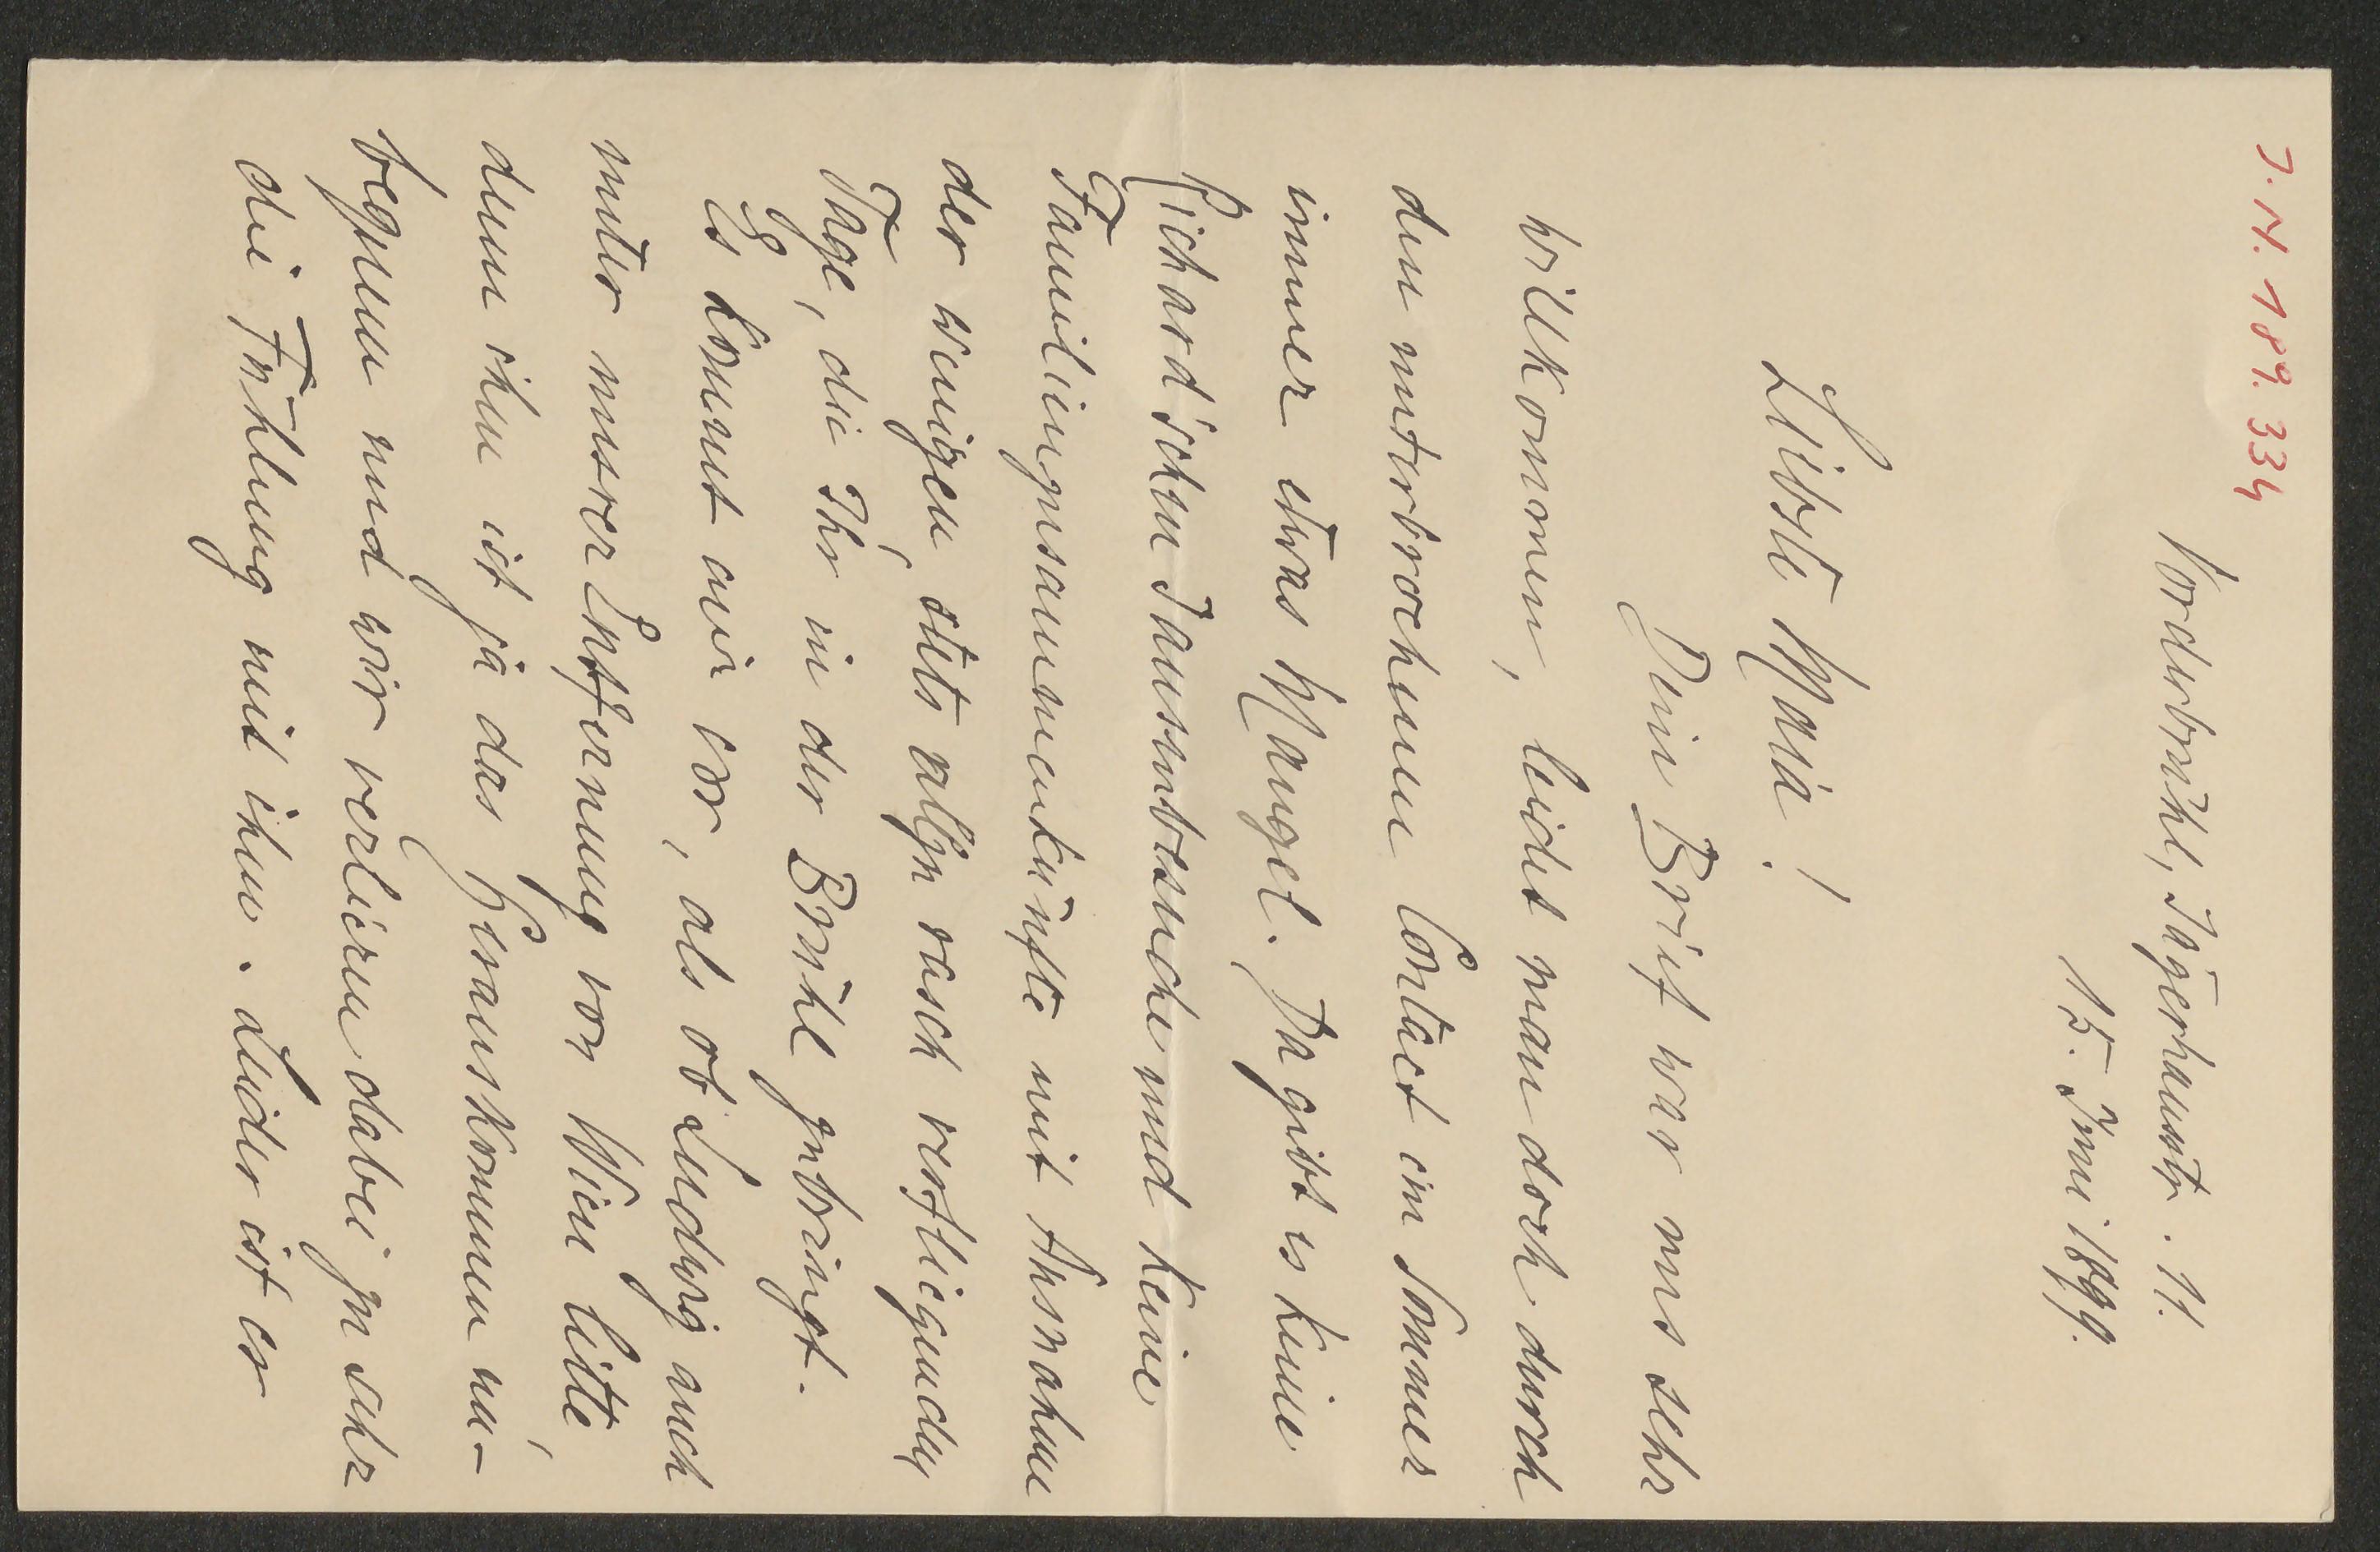 J.N. 189.334
Vorderbrühl, Jägerhausstr. 11.
15. Juni 1899.
Liebste Marie!
Dein Brief war uns sehr
willkommen, leidet man doch durch
den unterbrochenen Contact im Sommer
immer etwas Mangel. Da gibt es keine
Richard'schen Jausenbesuche und keine
Familienzusammenkünfte mit Ausnahme
der wenigen, stets allzu rasch verfliegenden
Tage, die Ihr in der Brühl zubringt.
Es kommt mir vor, als ob Ludwig auch
unter unserer Entfernung von Wien litte,
denn ihm ist ja das Herauskommen un-
bequem und wir verlieren dabei zu sehr
die Fühlung mit ihm. Leider ist er